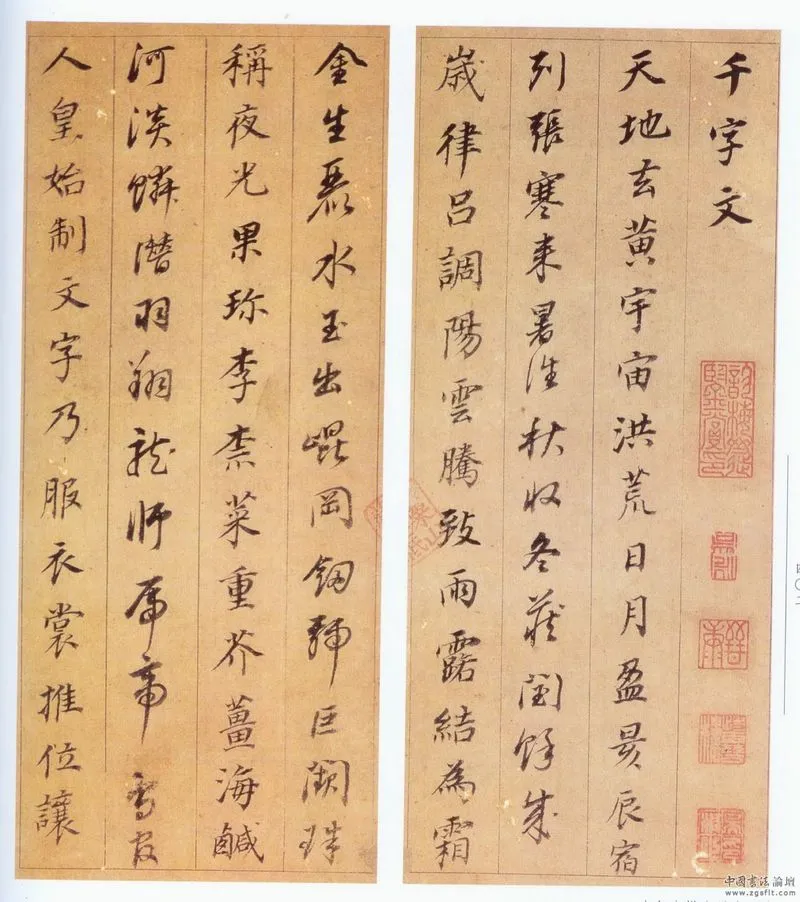 千字文
天地玄黃宇宙洪荒日月盈昃辰宿
列張寒来暑往秋收冬藏閏餘成
歲律呂調陽雲騰致雨露結為霜
金生麗水玉出崐岡釼號巨闕珠
稱夜光果珎李柰菜重芥薑海鹹
河淡鱗潛羽翔龍師帝鳥官
人皇始制文字乃服衣裳推位讓
中國書法論壇
www.zgsflt.com